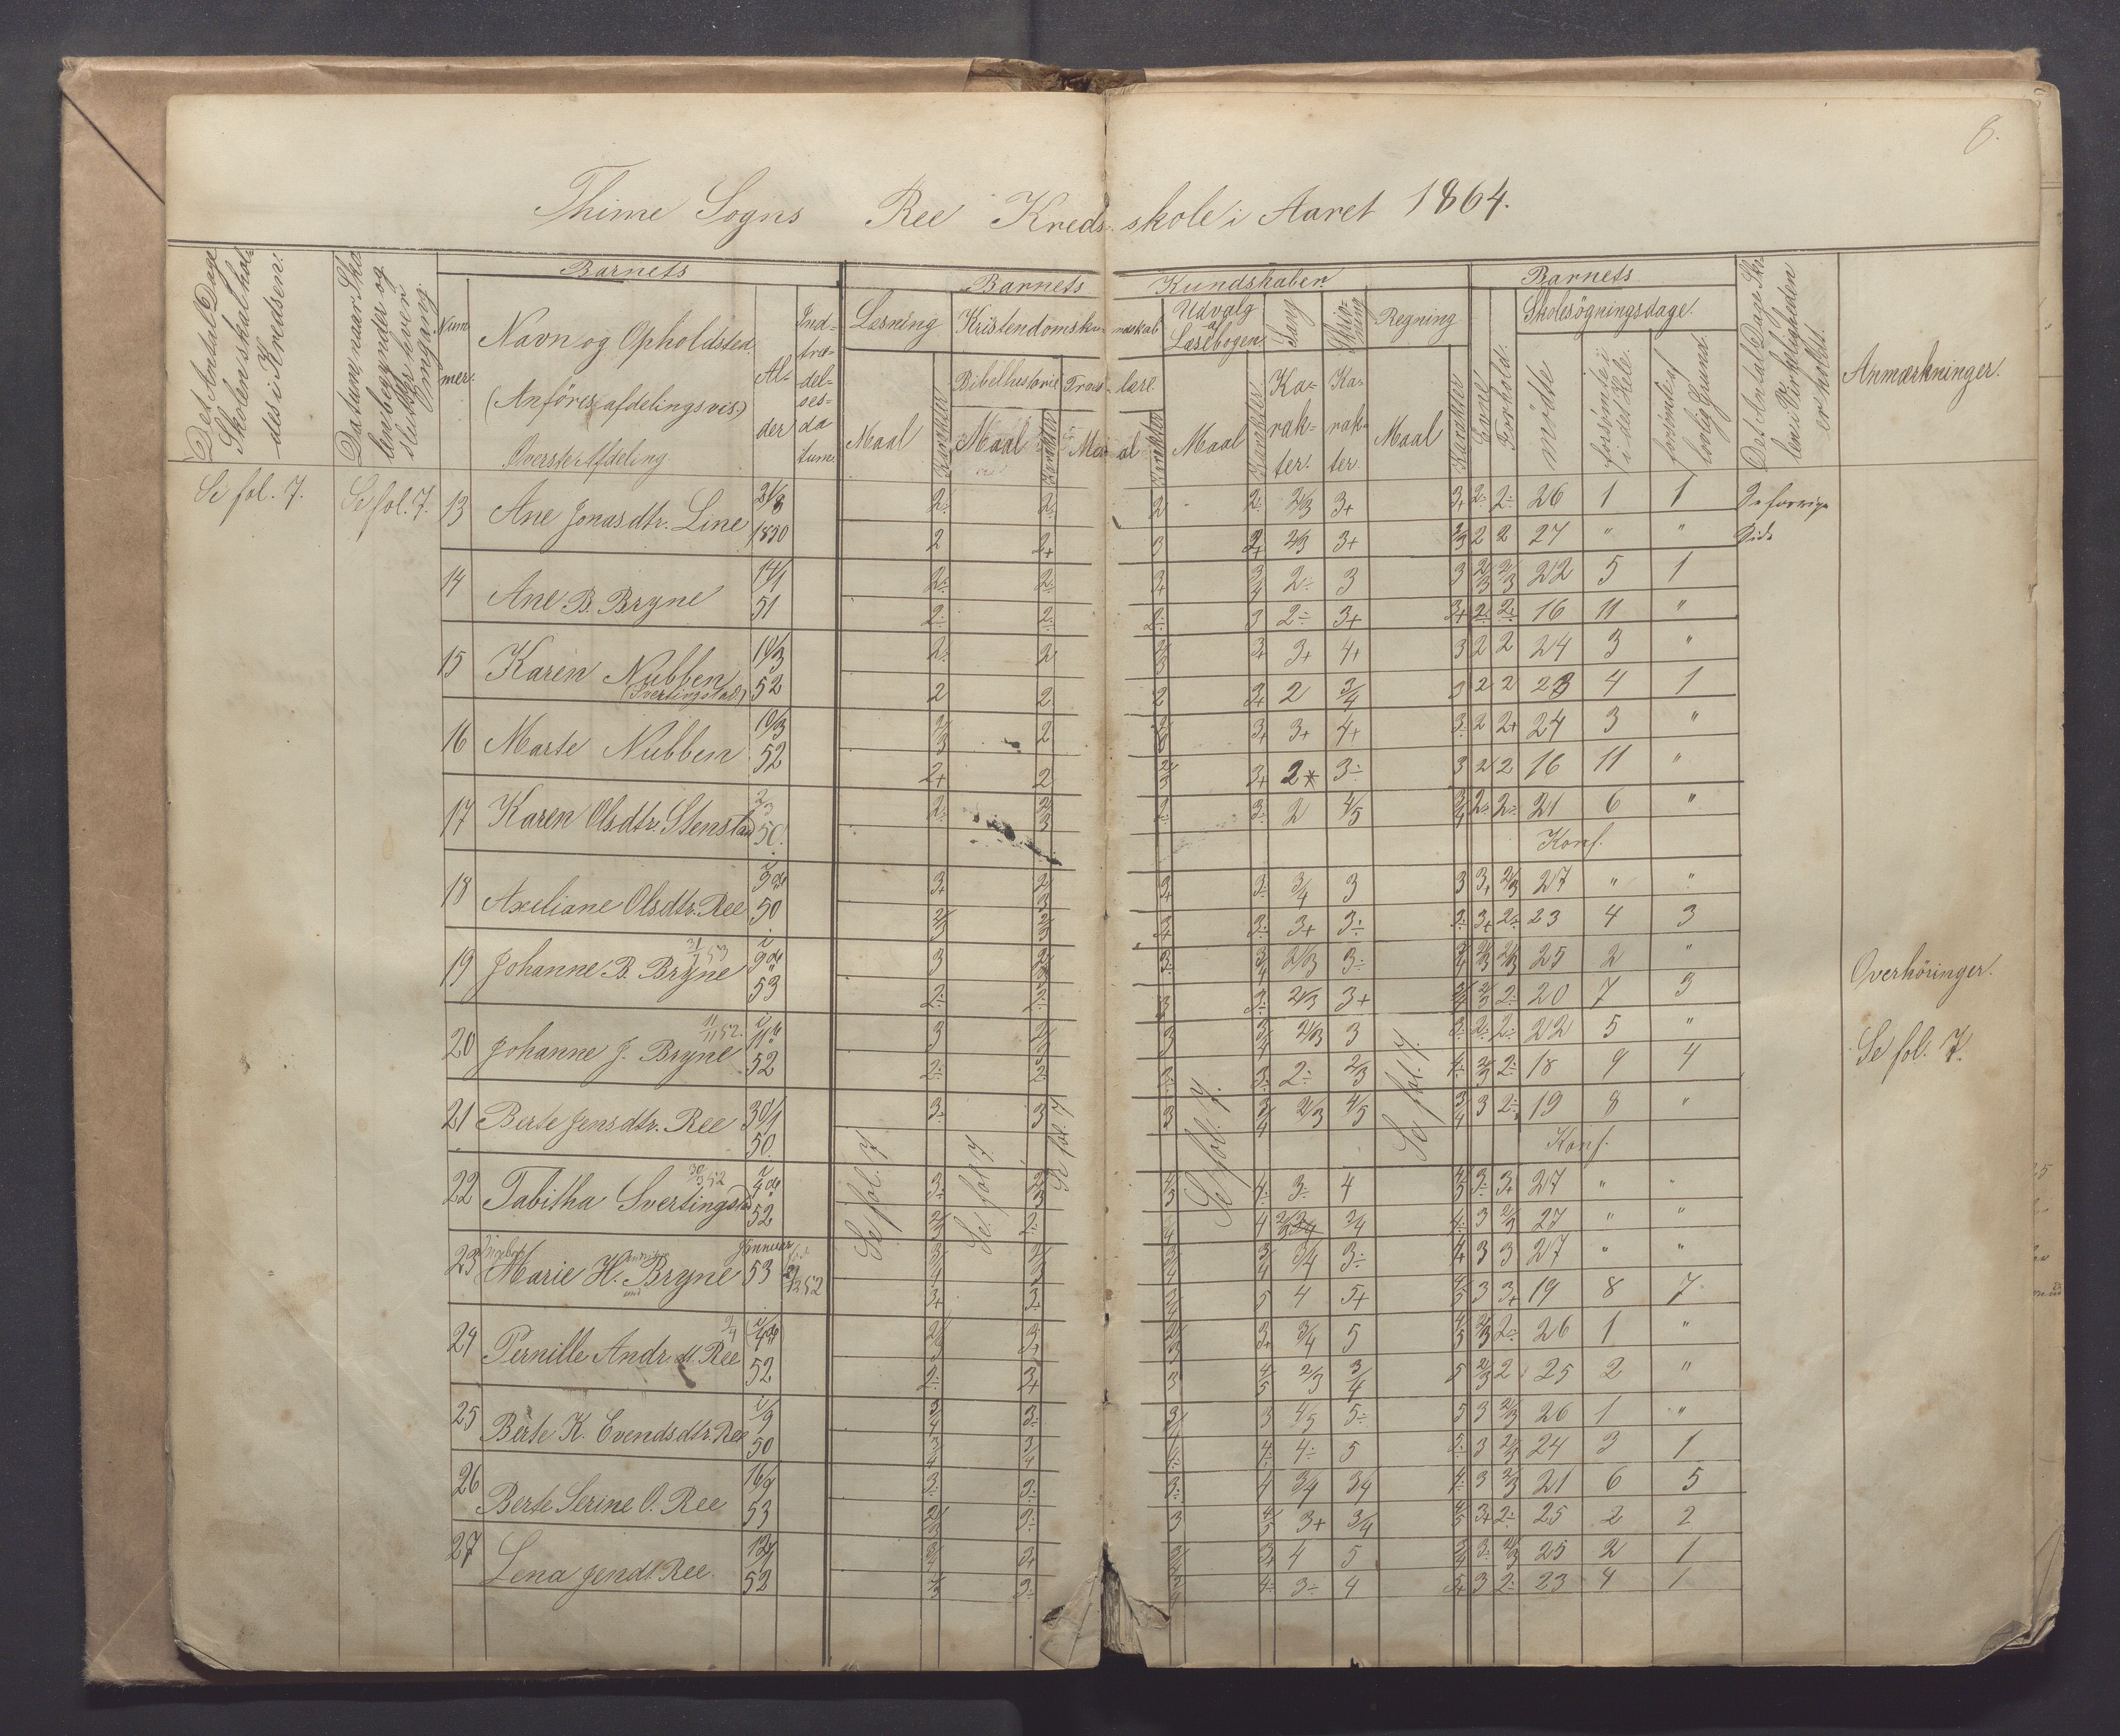 8.
Thime Sogns Ree Kreds skole i Aaret 1864.
Det Antal Dage Skolen skal holdes i Kredsen.
Datum, naar Skolen begynder og slutter hver Omgang.
Barnets
Nummer.
Navn og Opholdsted.
(Anføres afdelingsvis.)
Överste Afdeling
Alder
Indtrædelsesdatum.
Barnets Kundskaber
Læsning
Maal
Karakter
Kristendomskundskab
Bibelhistorie
Maal
Karakter
Troeslære
Maal
Karakter
Udvalg af Læsebogen
Maal
Karakter
Sang
Karakter.
Skrivning
Karakter.
Regning
Maal
Karakter
Barnets
Evne
Forhold.
Skolesögningsdage.
mödte
forsömte i det Hele.
forsömte af lovlig Grund.
Det Antal Dage Skolen i Virkeligheden er holdt.
Anmærkninger.
Se fol. 7. Se fol. 7.
13 Ane Jonasdtr. Line 2÷ 2÷ 2 2÷ 2/3 3+ 3+ 2÷ 2÷ 26 1 1 Se forrige
1850 2 2+ 3 2/3 3+ 2/3 2 2 27 " " Side
14 Ane B. Bryne 14/1 2÷ 2÷ 3/4 2÷ 3 3 2/3 2/3 22 5 1
51 2÷ 2÷ 2÷ 3 2÷ 3+ 3+ 2÷ 2÷ 16 11 "
15 Karen Nubben 19/3 2÷ 2 2/3 3+ 3+ 4+ 3 2 2 24 3 "
(Svertingstad) 52 2 2 2 3+ 2 3/4 3 2 2 23 4 1
16 Marte Nubben 19/3 2/3 2 2/3 3+ 3+ 4+ 3÷ 2 2+ 24 3 "
52 2+ 2 2/3 3+ 2 3÷ 3 2 2 16 11 "
17 Karen Olsdtr. Stenstad 2/3 2÷ 2/3 2÷ 3÷ 2 4/5 3/4 2÷ 2÷ 21 6 "
50. Konf.
18 Axeliane Olsdtr. Ree 50 3+ 2/3 3+ 3÷ 3/4 3 3 3+ 2/3 27 " "
2/3 2/3 3+ 3÷ 3+ 3÷ 3÷ 3+ 2÷ 23 4 3
19 Johanne B. Bryne 53 3 2/3 3÷ 3/4 2/3 3÷ 3/4 2/3 2/3 25 2 "
2÷ 2÷ 3 3÷ 2/3 3+ 3/4 2/3 2÷ 20 7 3
Overhöringer.
20 Johanne J. Bryne 52 3 2/3 3 3/4 2/3 3 3÷ 2÷ 2÷ 22 5 "
2÷ 2÷ 3÷ 3÷ 2÷ 2/3 4÷ 2/3 2÷ 18 9 4
Se fol. 7.
21 Berte Jensdtr. Ree 30/1 3÷ 3 3 3/4 2/3 4/5 3/4 3 2÷ 19 8 "
50. Konf.
Se fol. 7
Se fol. 7
Se fol. 7
Se fol. 7.
Se fol. 7.
22 Tabitha Svertingstad 52 3÷ 2/3 4÷ 3÷ 4 3÷ 3+ 27 " "
2/3 2÷ 4 2/3 3/4 4÷ 3 2/3 27 " "
23 Marie H. Bryne Januar 53 3/4 3/4 3/4 3÷ 3 3 27 " "
3+ 3÷ 5 4 5+ 4/5 3 3+ 19 8 7
24 Pernille Andr.dt. Ree 52 2/3 3+ 3+ 3/4 5 4/5 2/3 2÷ 26 1 "
2÷ 3+ 3 4/5 2/3 3/4 5 2/3 2 25 2 "
25 Berte K. Evendsdtr. Ree 50 3/4 3÷ 3 4/5 5÷ 5 3 2/3 26 1 "
3/4 3/4 4÷ 4÷ 5 5÷ 3 2/3 24 3 1
26 Berte Serine O. Ree 53 3÷ 3÷ 3÷ 4 3/4 3/4 4÷ 3 2/3 21 6 5
2/3 3÷ 3 4/5 3+ 3/4 4/5 3+ 2÷ 25 2 2
27 Lena Jendt. Ree 52 3+ 3+ 4 5 3÷ 2/3 25 2 1
3÷ 4÷ 3÷ 4 5+ 3 2÷ 23 4 1